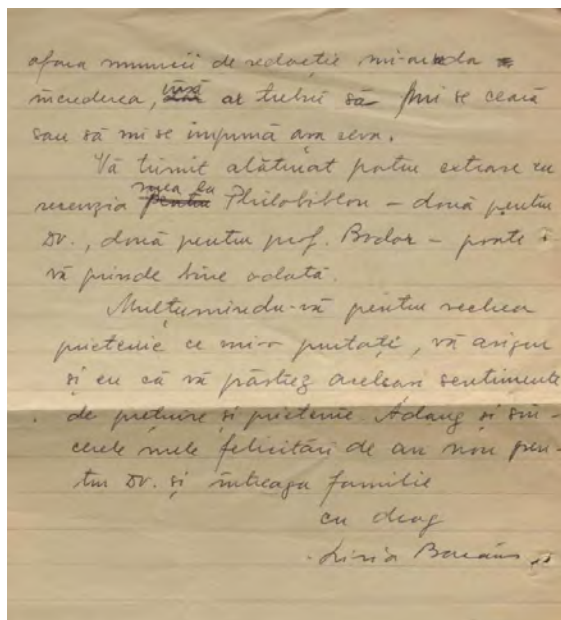 afara muncii de redacție mi-ar da
încrederea, însă ar trebui să mi se ceară
sau să mi se impună așa ceva.
Vă trimit alăturat patru extrase cu
recenzia mea la Philobiblon – două pentru
Dv., două pentru prof. Bodor – poate
vă prinde bine odată.
Mulțumindu-vă pentru vechea
prietenie ce mi-o purtați, vă asigur
și eu că vă păstrez aceleași sentimente
de prețuire și prietenie. Adaug și sin-
cerele mele felicitări de an nou pen-
tru Dv. și întreaga familie
cu drag
Livia